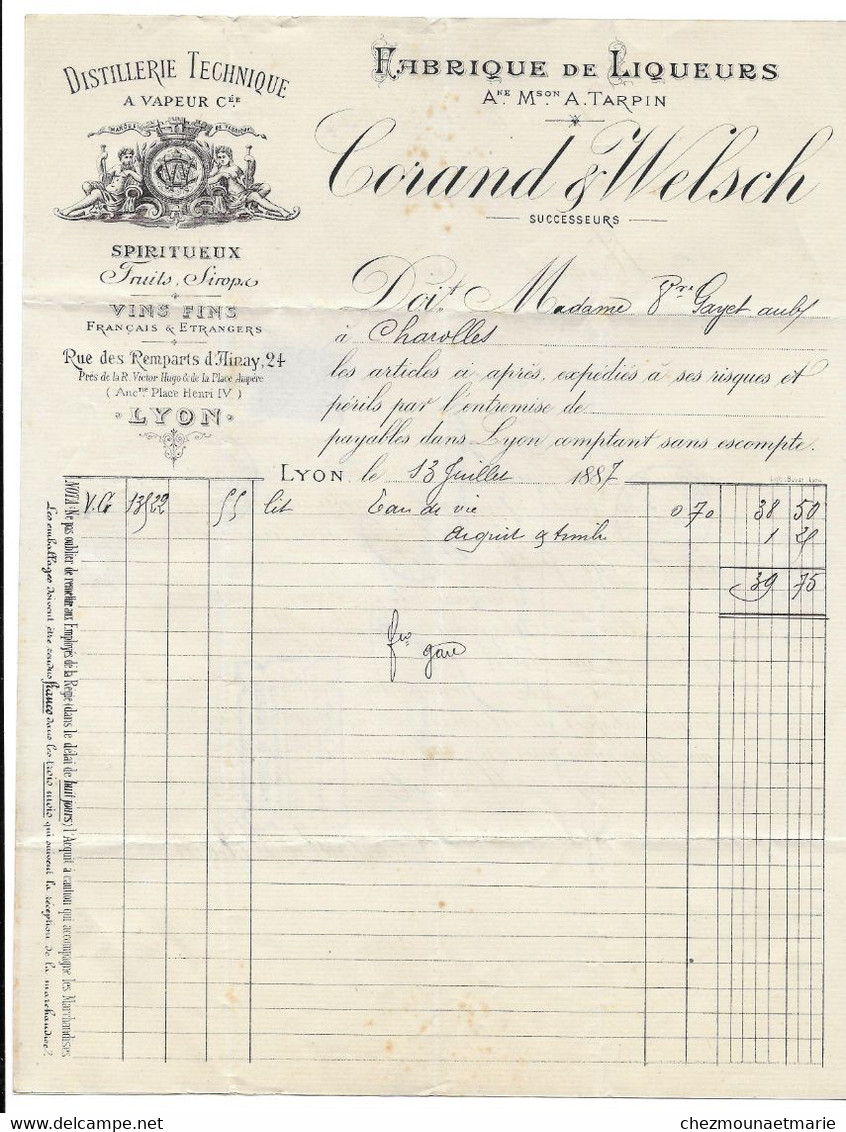 DISTILLERIE TECHNIQUE
A VAPEUR Cée
MARQUE DE FABRIQUE
CW
SPIRITUEUX
Fruits, Sirops
VINS FINS
FRANÇAIS & ETRANGERS
Rue des Remparts d'Ainay, 24
Près de la R. Victor Hugo & de la Place Ampère
(Ancne Place Henri IV)
LYON
FABRIQUE DE LIQUEURS
Ane Mson A. TARPIN
Corand & Welsch
SUCCESSEURS
Doit Madame Vve Gayet aubg
à Charolles
les articles ci après, expédiés à ses risques et
périls par l'entremise de
payables dans Lyon comptant sans escompte.
LYON, le 13 Juillet 1887
V.G 13522 55 lit Eau de vie 0 70 38 50
acquit & timbre 1 25
39 75
fco gare
NOTA: Ne pas oublier de remettre aux Employés de la Régie (dans le délai de huit jours) l'Acquit à caution qui accompagne les Marchandises
Les emballages doivent être rendus franco dans les trois mois qui suivent la réception de la marchandise.
chezmounaetmarie